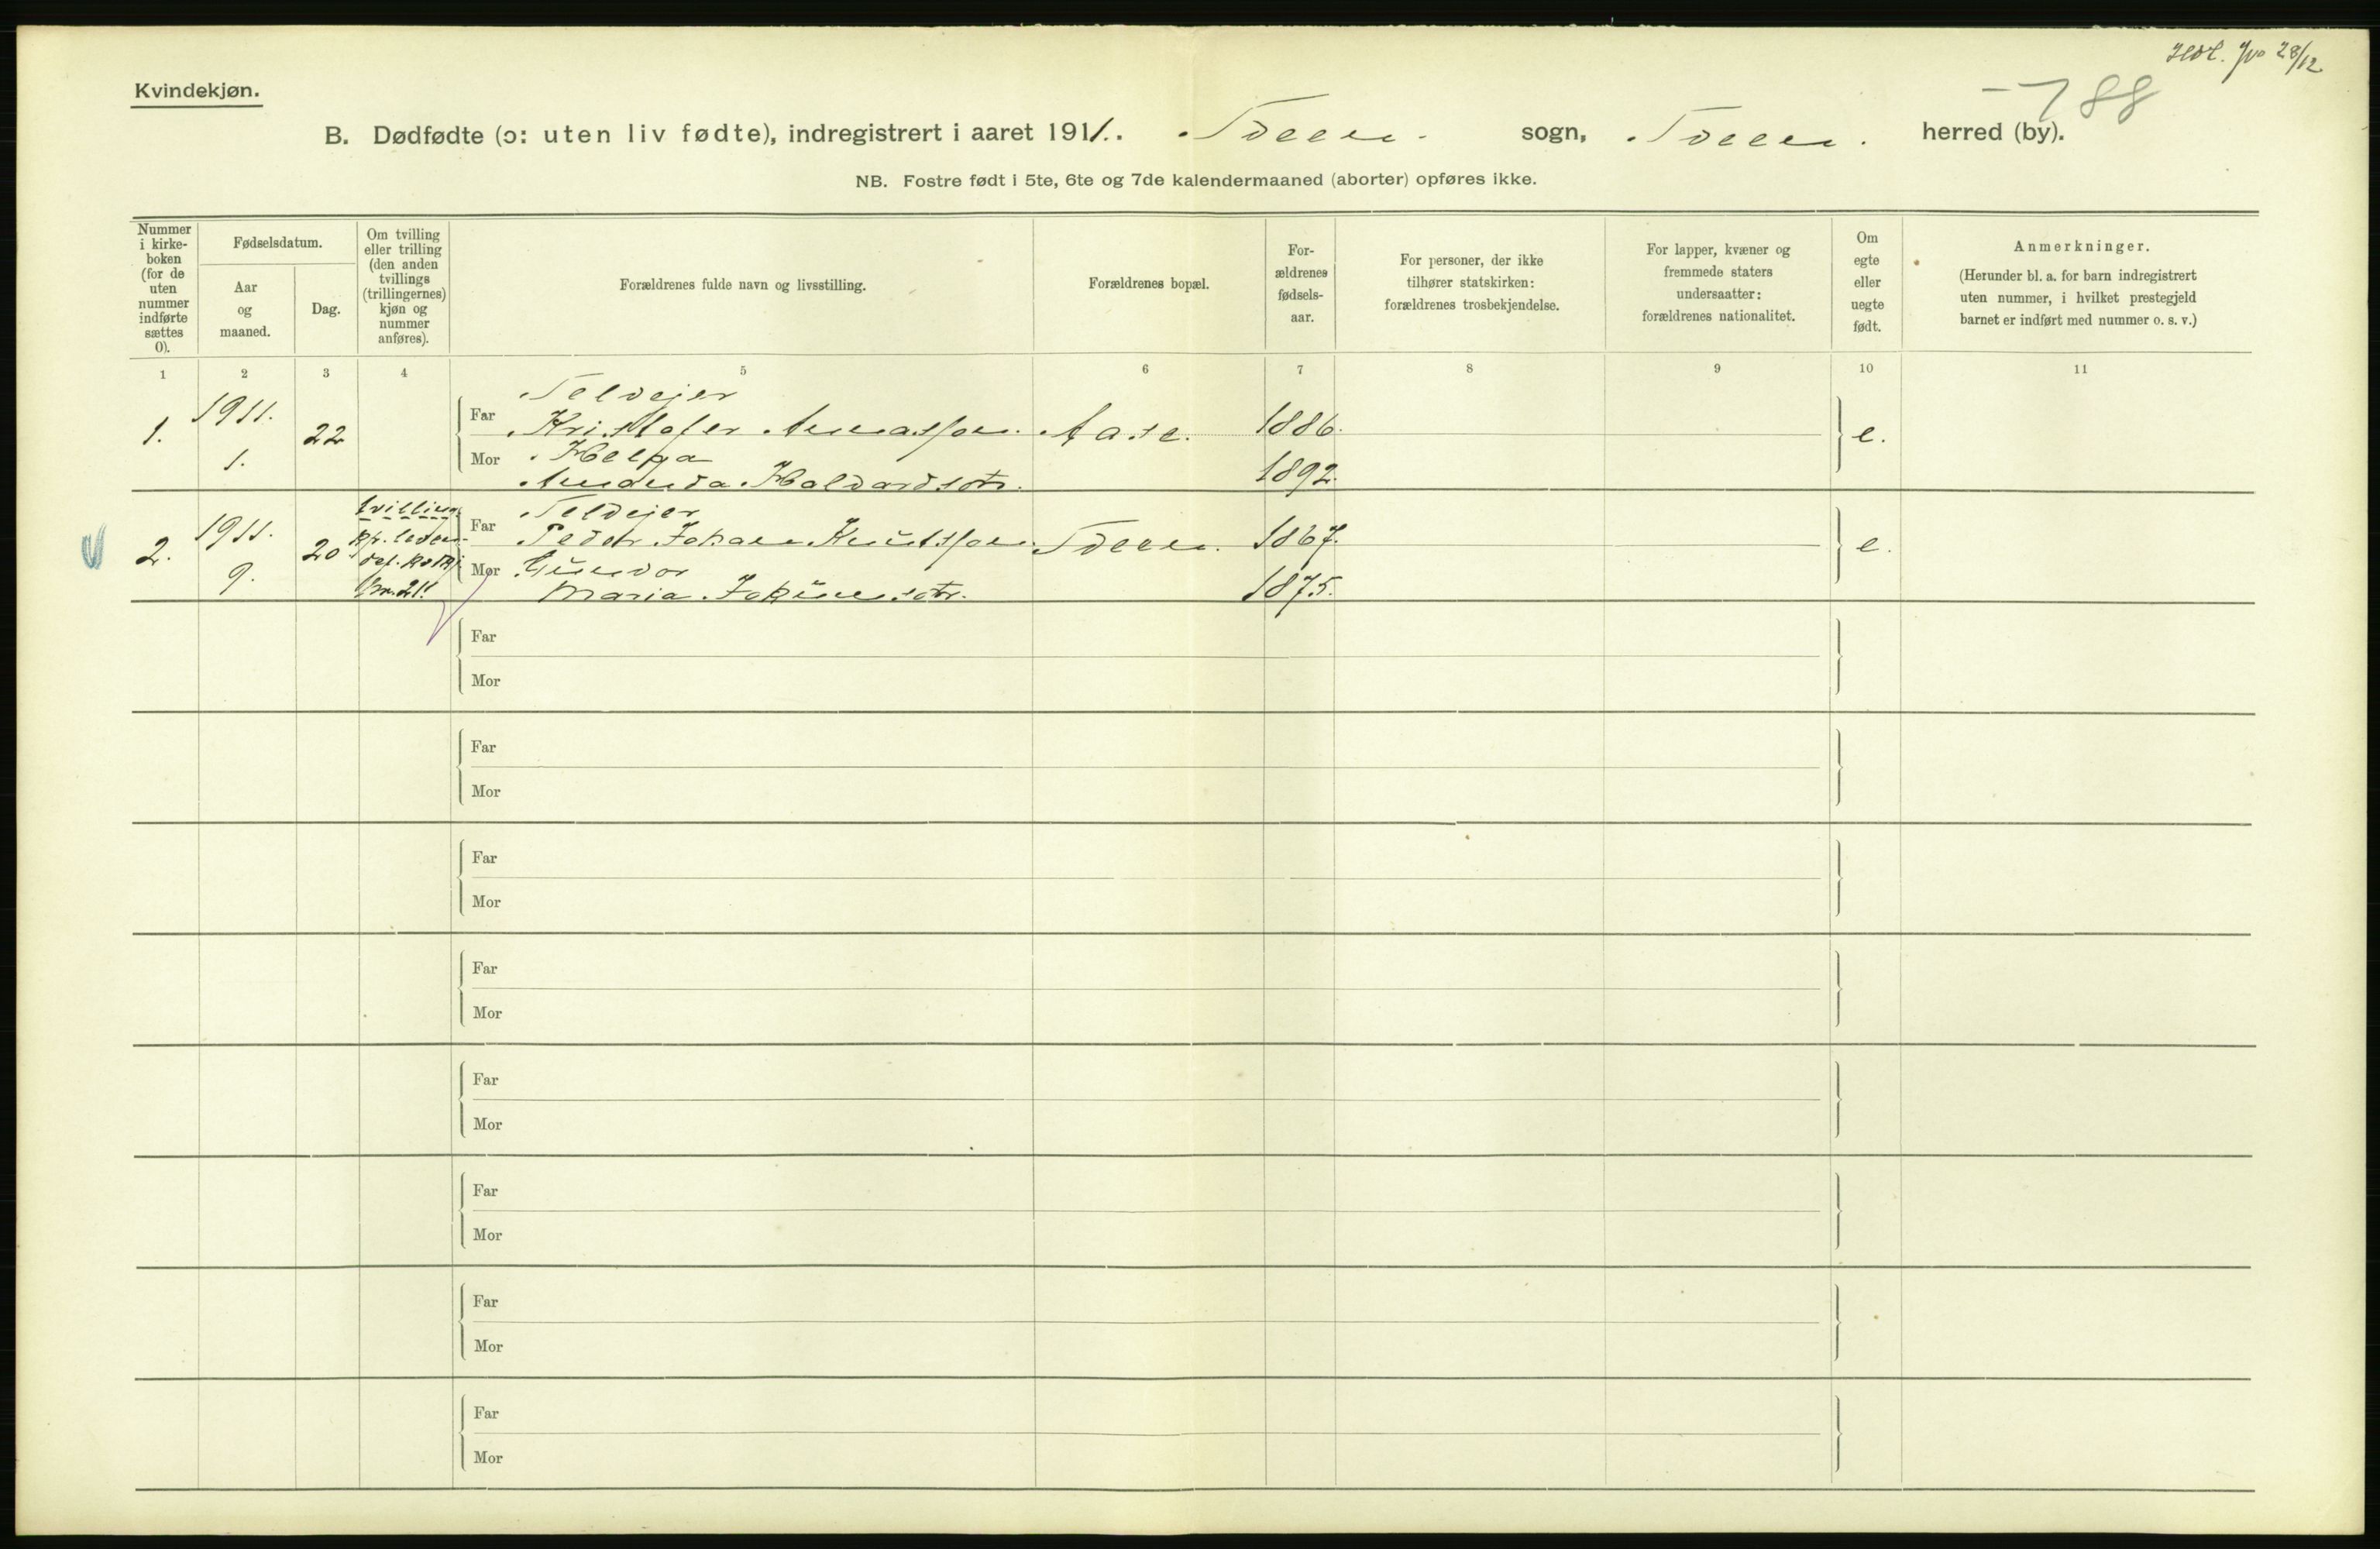 28/12
788
Kvindekjøn.
B. Dødfødte (ɔ: uten liv fødte), indregistrert i aaret 1911. sogn, herred (by).
NB. Fostre født i 5te, 6te og 7de kalendermaaned (aborter) opføres ikke.
Nummer i kirke-boken (for de uten nummer indførte sættes 0).
Fødselsdatum.
Aar og maaned.
Dag.
Om tvilling eller trilling (den anden tvillings (trillingernes) kjøn og nummer anføres).
Forældrenes fulde navn og livsstilling.
Forældrenes bopæl.
For-ældrenes fødsels-aar.
For personer, der ikke tilhører statskirken: forældrenes trosbekjendelse.
For lapper, kvæner og fremmede staters undersaatter: forældrenes nationalitet.
Om egte eller uegte født.
Anmerkninger.
(Herunder bl. a. for barn indregistrert uten nummer, i hvilket prestegjeld barnet er indført med nummer o. s. v.)
1 2 3 4 5 6 7 8 9 10 11
Selvejer
1. 1911. 22 Far Kristofer Aase. 1886. e.
1. Mor Helga
Halvardsdtr. 1892.
tvilling. Selvejer
2. 1911. 20 Far Peder Johan Knutsson 1867. e.
9. Mor Gunvor
nr. 21. Maria 1875.
Far
Mor
Far
Mor
Far
Mor
Far
Mor
Far
Mor
Far
Mor
Far
Mor
Far
Mor